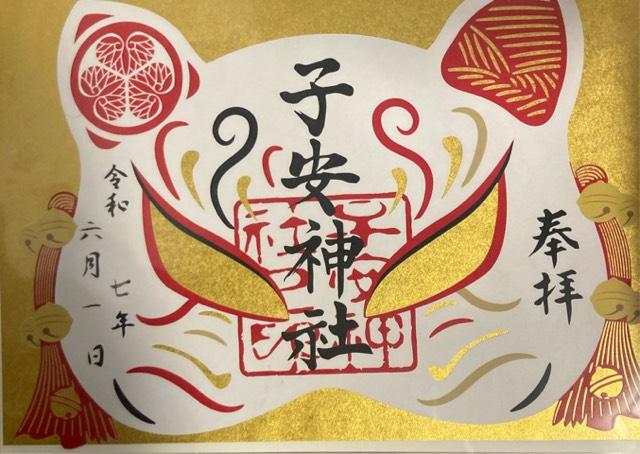 奉拝
子安神社
令和七年
六月一日